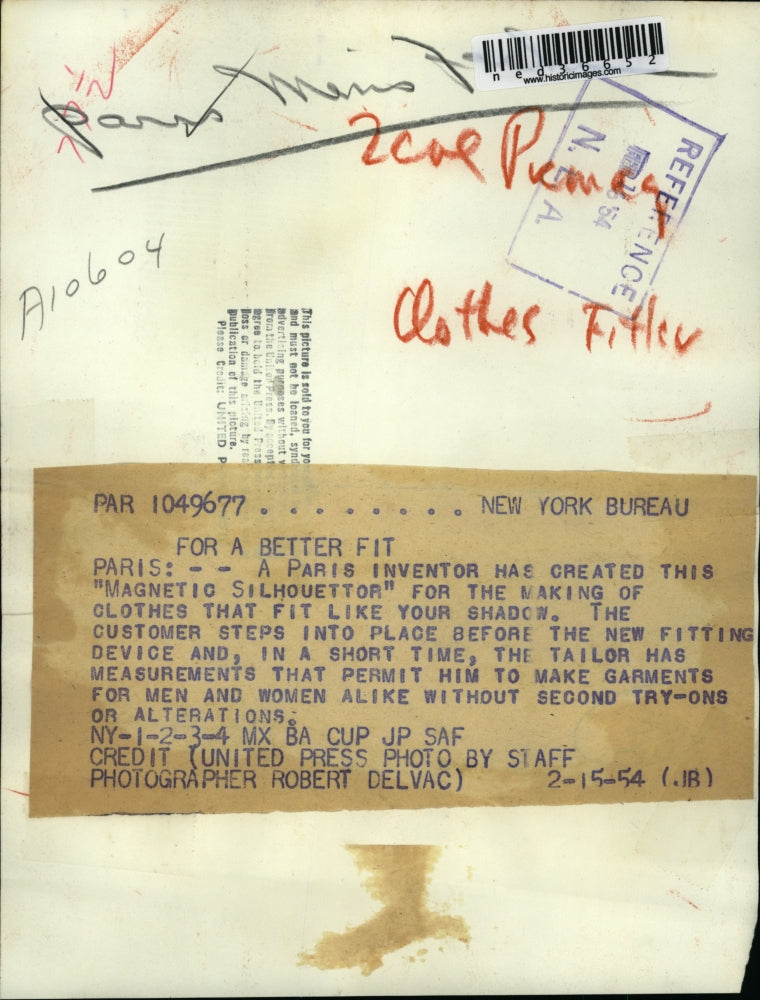 ned36652
www.historicimages.com
Paris Mens
2 col
Clothes Fitter
REFERENCE
'54
N.E.A.
A10604
This picture is sold to you for yo
and must not be loaned, synd
advertising purposes without w
from the United Press. By accept
agree to hold the United Press
loss or damage arising by rea
publication of this picture.
Please Credit: UNITED P
PAR 1049677 . . . . . . . . . NEW YORK BUREAU
FOR A BETTER FIT
PARIS: - - A PARIS INVENTOR HAS CREATED THIS
"MAGNETIC SILHOUETTOR" FOR THE MAKING OF
CLOTHES THAT FIT LIKE YOUR SHADOW. THE
CUSTOMER STEPS INTO PLACE BEFORE THE NEW FITTING
DEVICE AND, IN A SHORT TIME, THE TAILOR HAS
MEASUREMENTS THAT PERMIT HIM TO MAKE GARMENTS
FOR MEN AND WOMEN ALIKE WITHOUT SECOND TRY-ONS
OR ALTERATIONS.
NY-1-2-3-4 MX BA CUP JP SAF
CREDIT (UNITED PRESS PHOTO BY STAFF
PHOTOGRAPHER ROBERT DELVAC) 2-15-54 (JB)